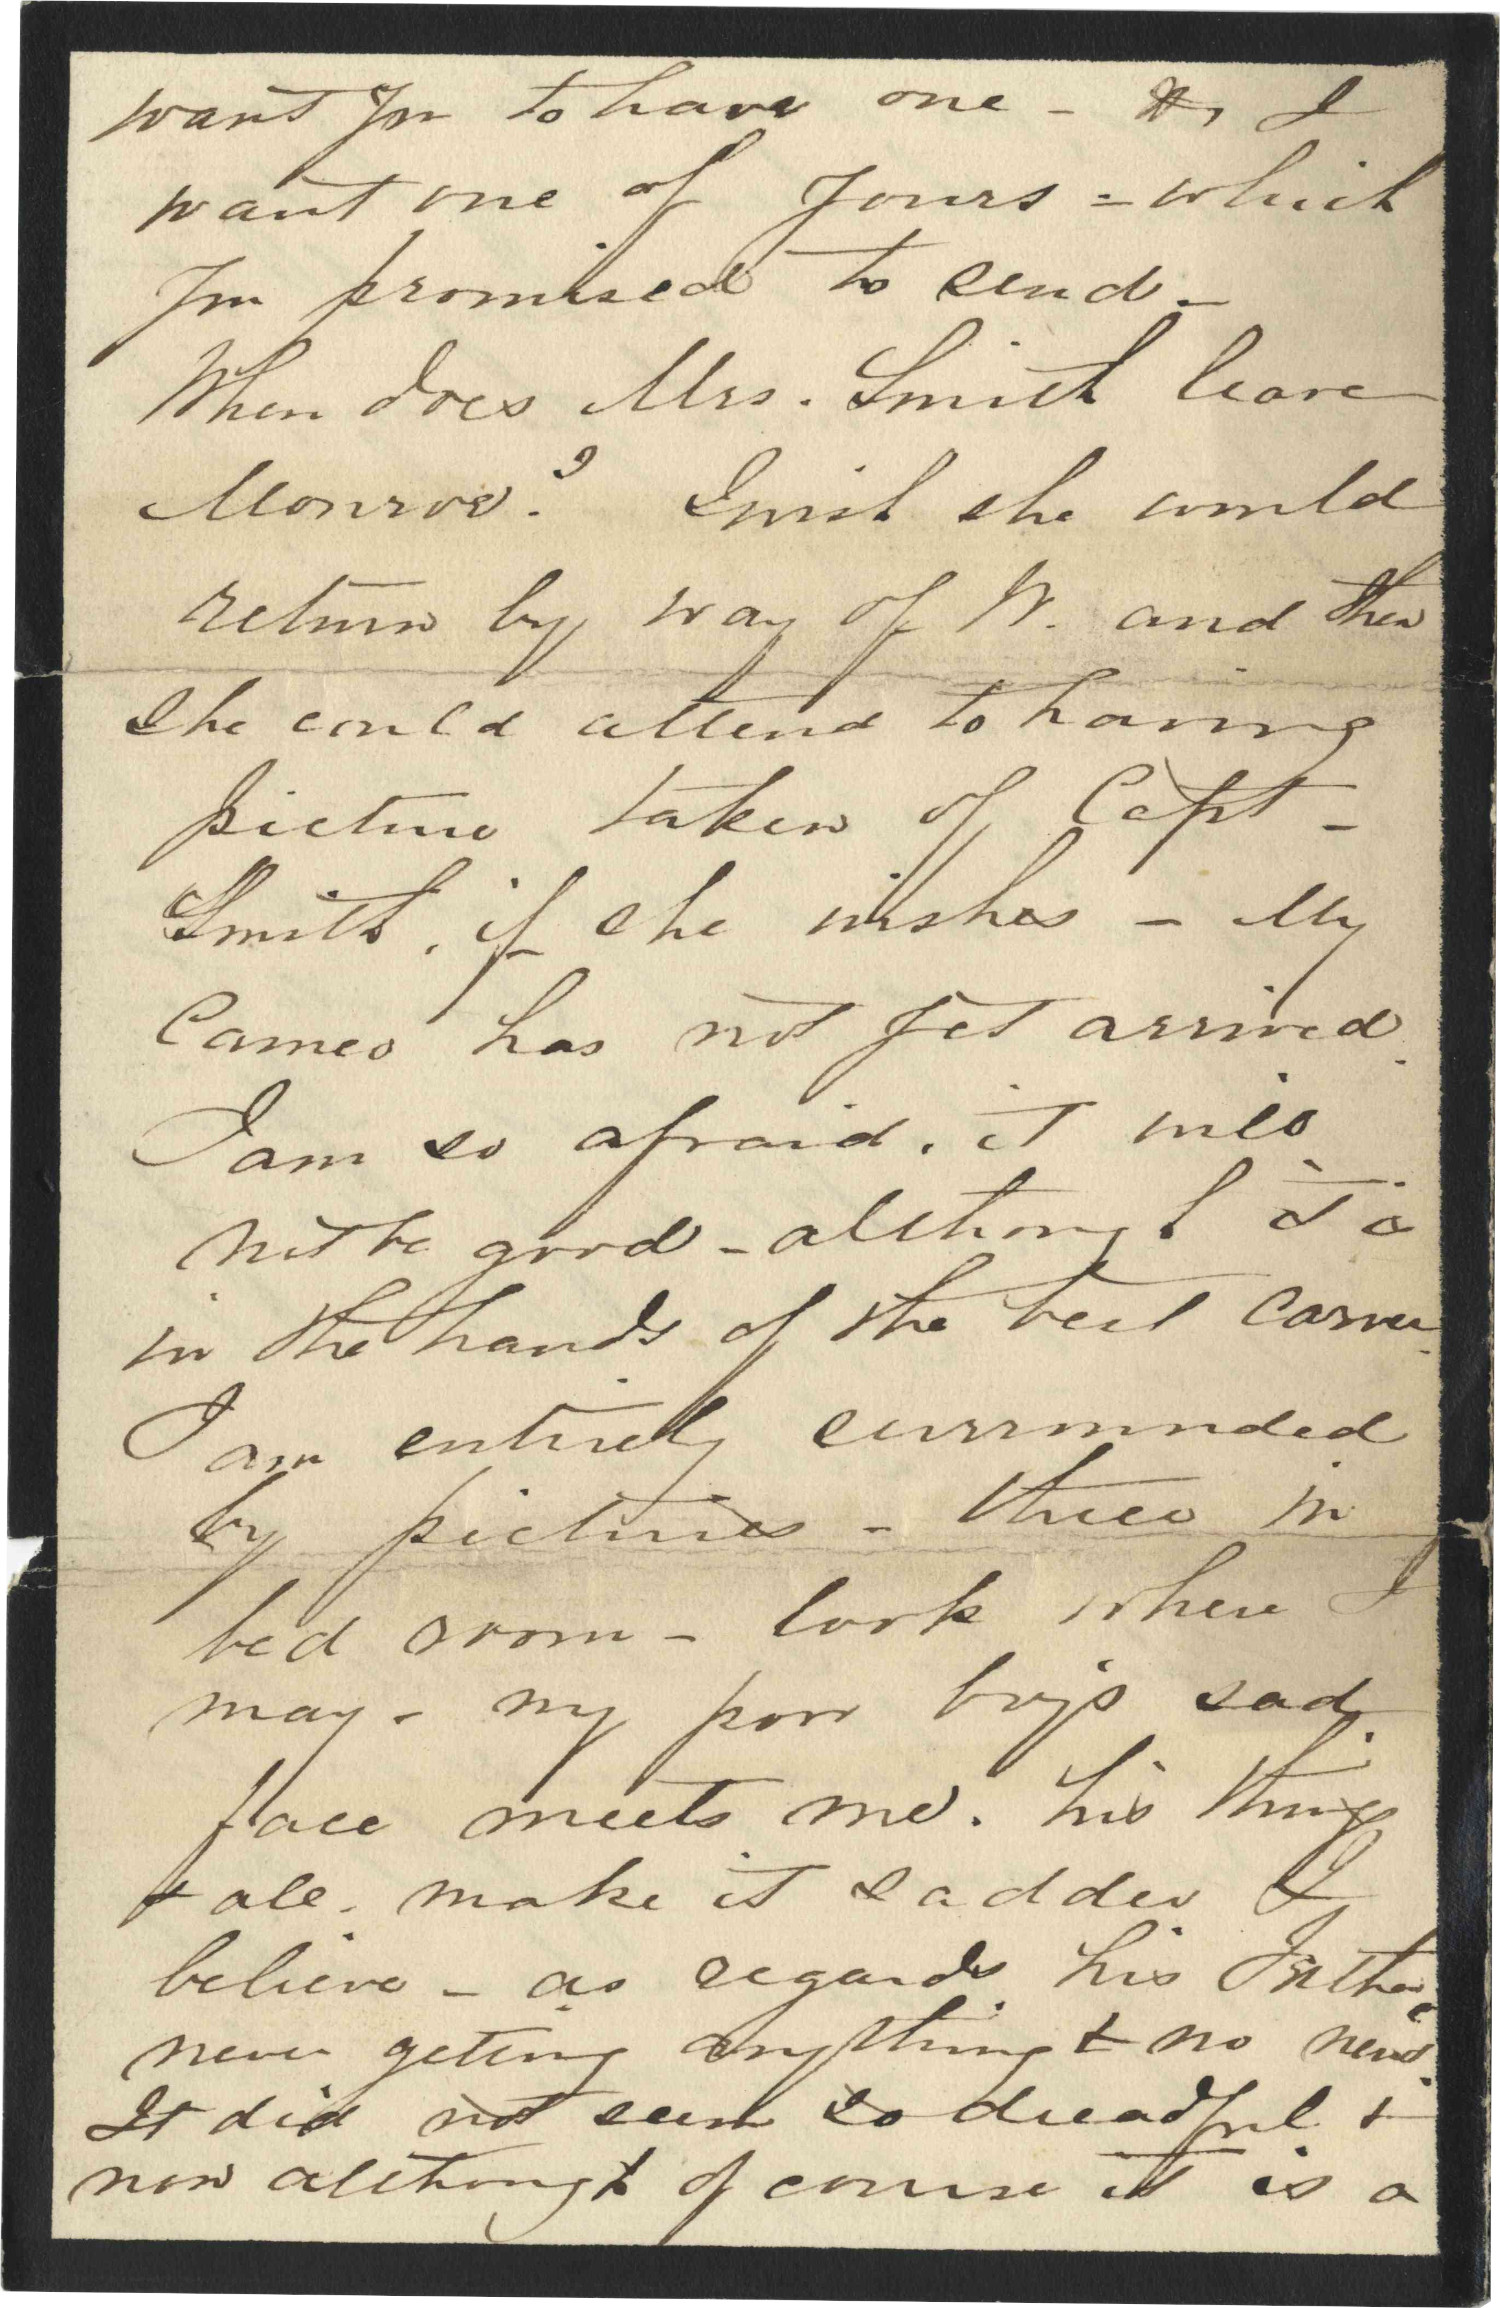 want you to have one - & I
want one of yours - which
you promised to send -
When does Mrs. Smith leave
Monroe? I wish she would
return by way of N. and then
she could attend to having
picture taken of Capt -
Smith, if she wishes - My
Cameo has not yet arrived.
I am so afraid, it will
not be good - although it is
in the hands of the best carver.
I am entirely surrounded
by pictures - three in
bed room - look where I
may - my poor boy's sad
face meets me. his things
& all. make it sadder I
believe - as regards his Father
never geting anything & no news.
It did not seem so dreadful &
now although of course it is a